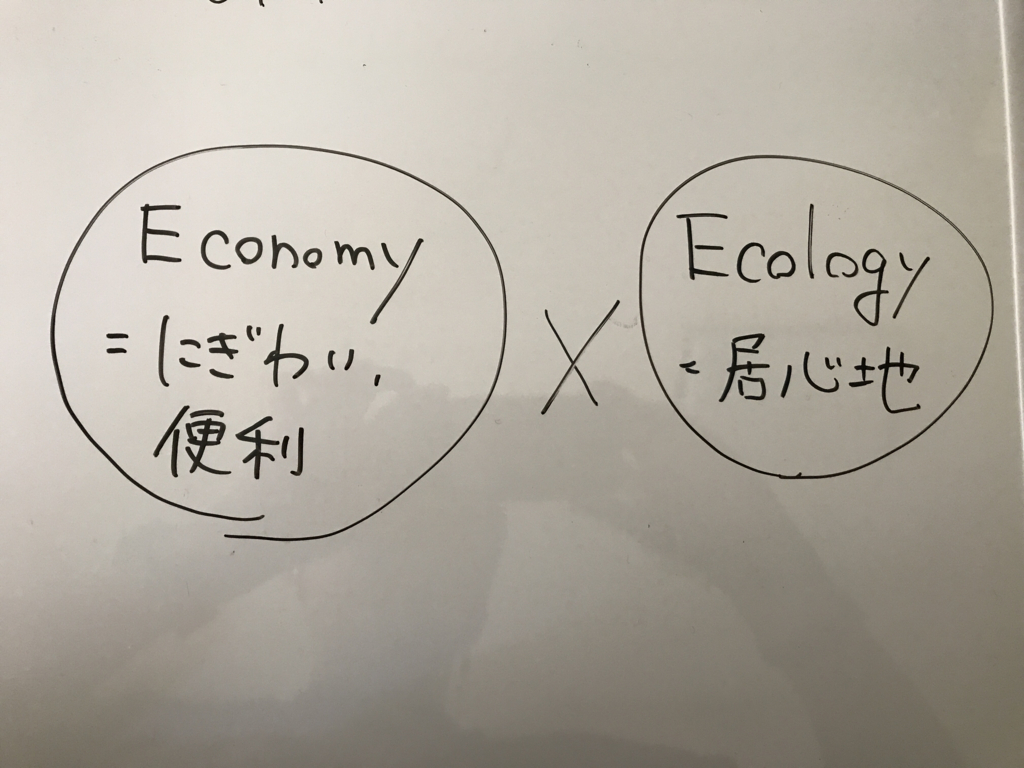 Economy
= にぎわい,
便利
×
Ecology
= 居心地